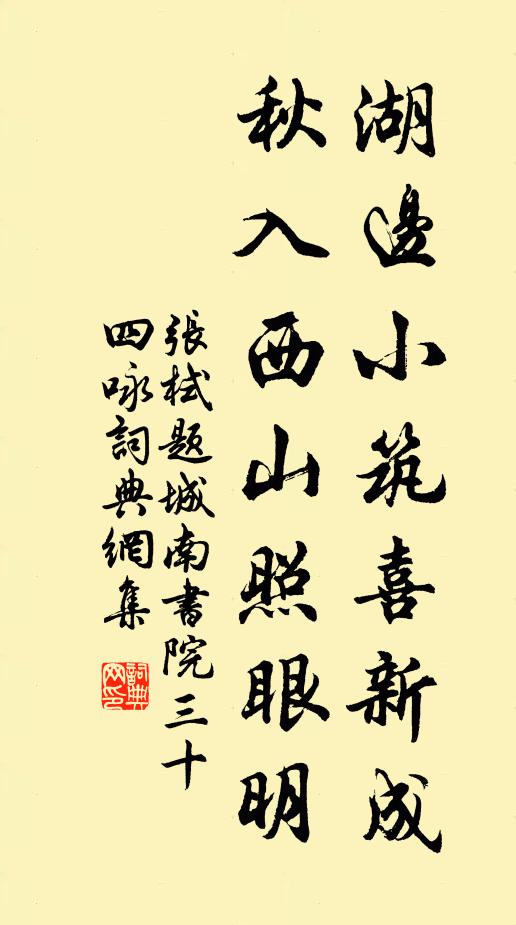 湖邊小筑喜新成
秋入西山照眼明
張栻題城南書院三十
四咏詞典網集
詞典網印